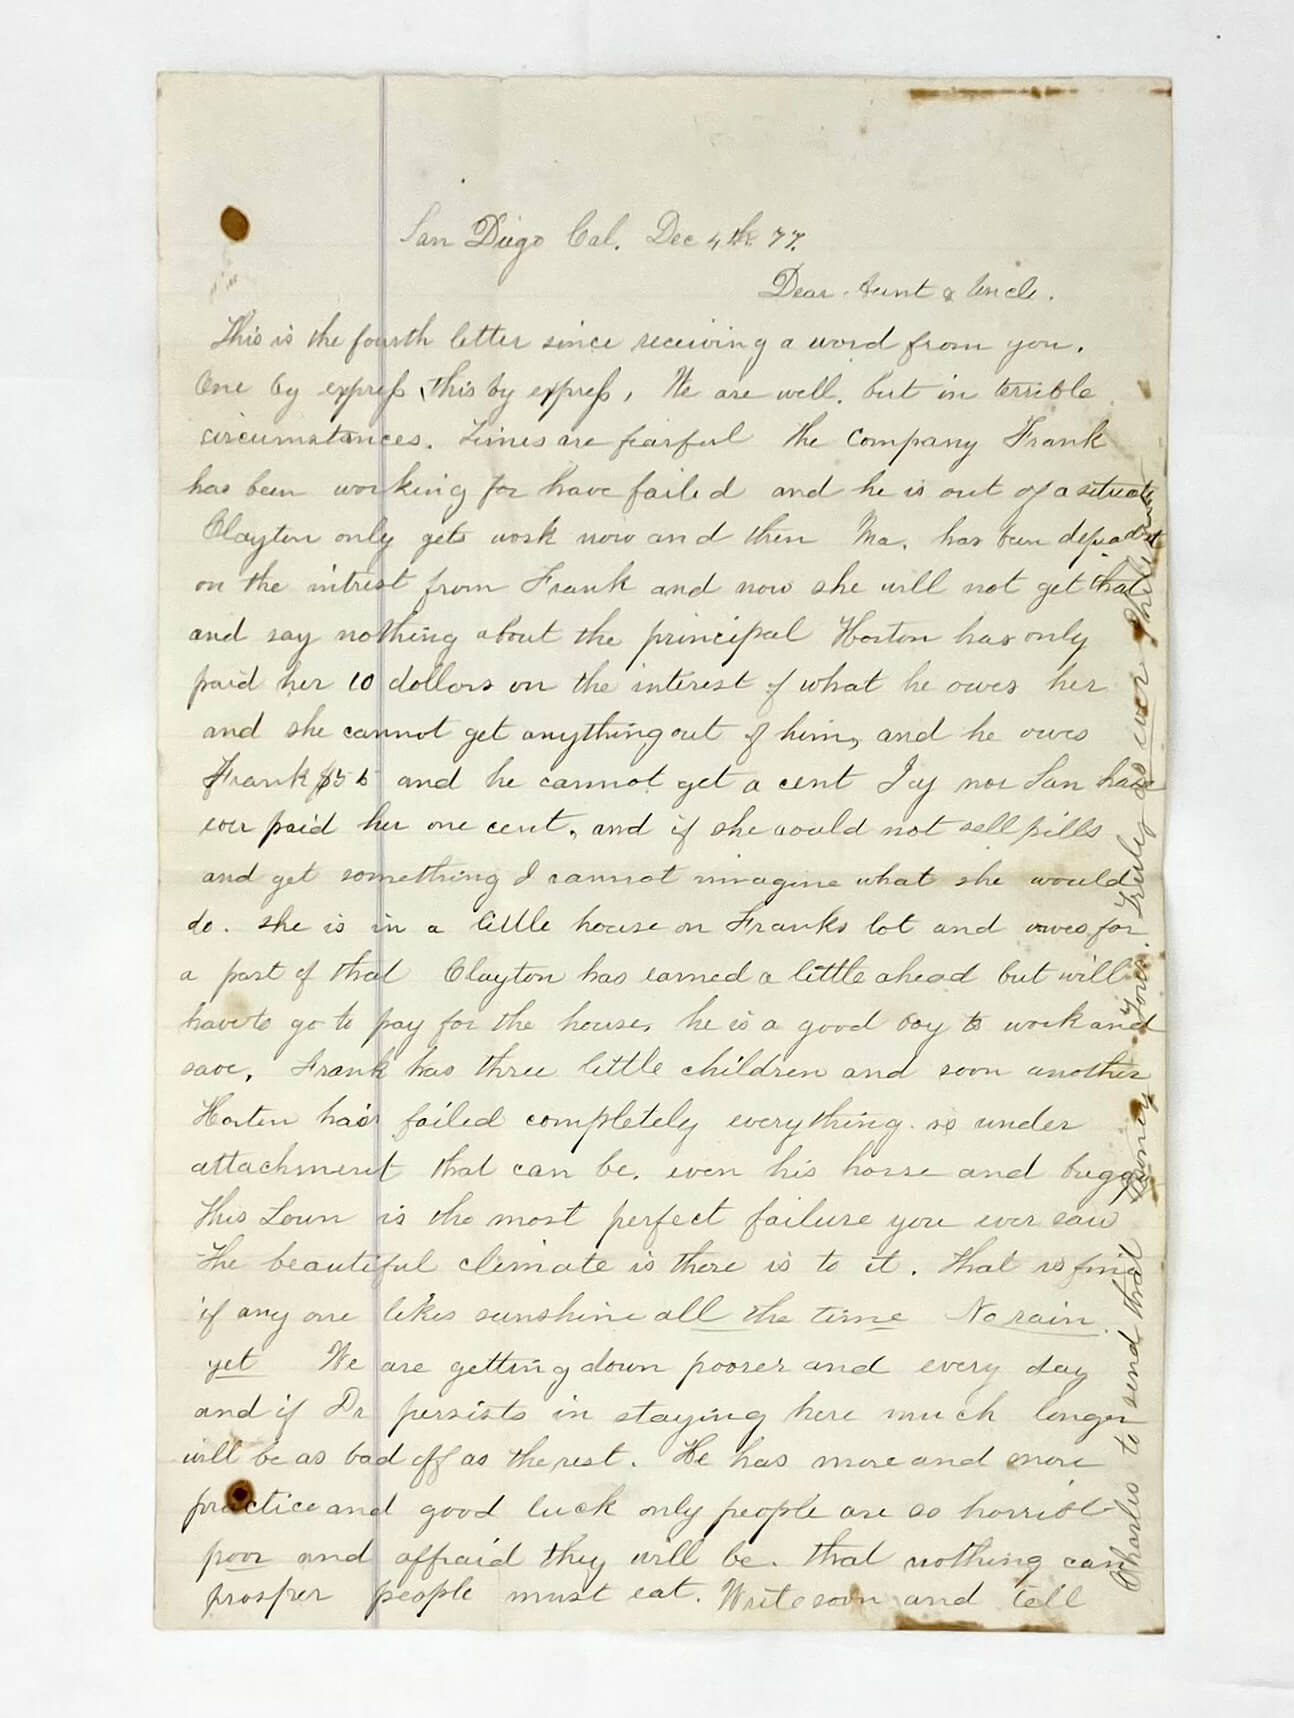 San Diego Cal. Dec 4th 77.
Dear Aunt & Uncle.
This is the fourth letter since receiving a word from you.
One by express, this by express, We are well. but in terrible
circumstances. Times are fearful the Company Frank
has been working for have failed and he is out of a situati
Clayton only gets work now and then Ma. has been dependent
on the intrest from Frank and now she will not get that
and say nothing about the principal Horton has only
paid her 10 dollars on the interest of what he owes her
and she cannot get anything out of him, and he owes
Frank and he cannot get a cent nor San have
ever paid her one cent, and if she would not sell pills
and get something I cannot imagine what she would
do. she is in a little house on Franks lot and owes for
a part of that Clayton has earned a little ahead but will
have to go to pay for the house, he is a good boy to work and
save, Frank has three little children and soon another
Horton has failed completely everything is under
attachment that can be. even his horse and buggy
This Town is the most perfect failure you ever saw
The beautiful climate is there is to it. that is fine
if any one likes sunshine all the time No rain.
yet We are getting down poorer and every day
and if Dr persists in staying here much longer
will be as bad off as the rest. He has more and more
practice and good luck only people are so horribl
poor and affraid they will be. that nothing can
prosper people must eat. Write soon and tell
Charles to send that money Your. Truly as ever